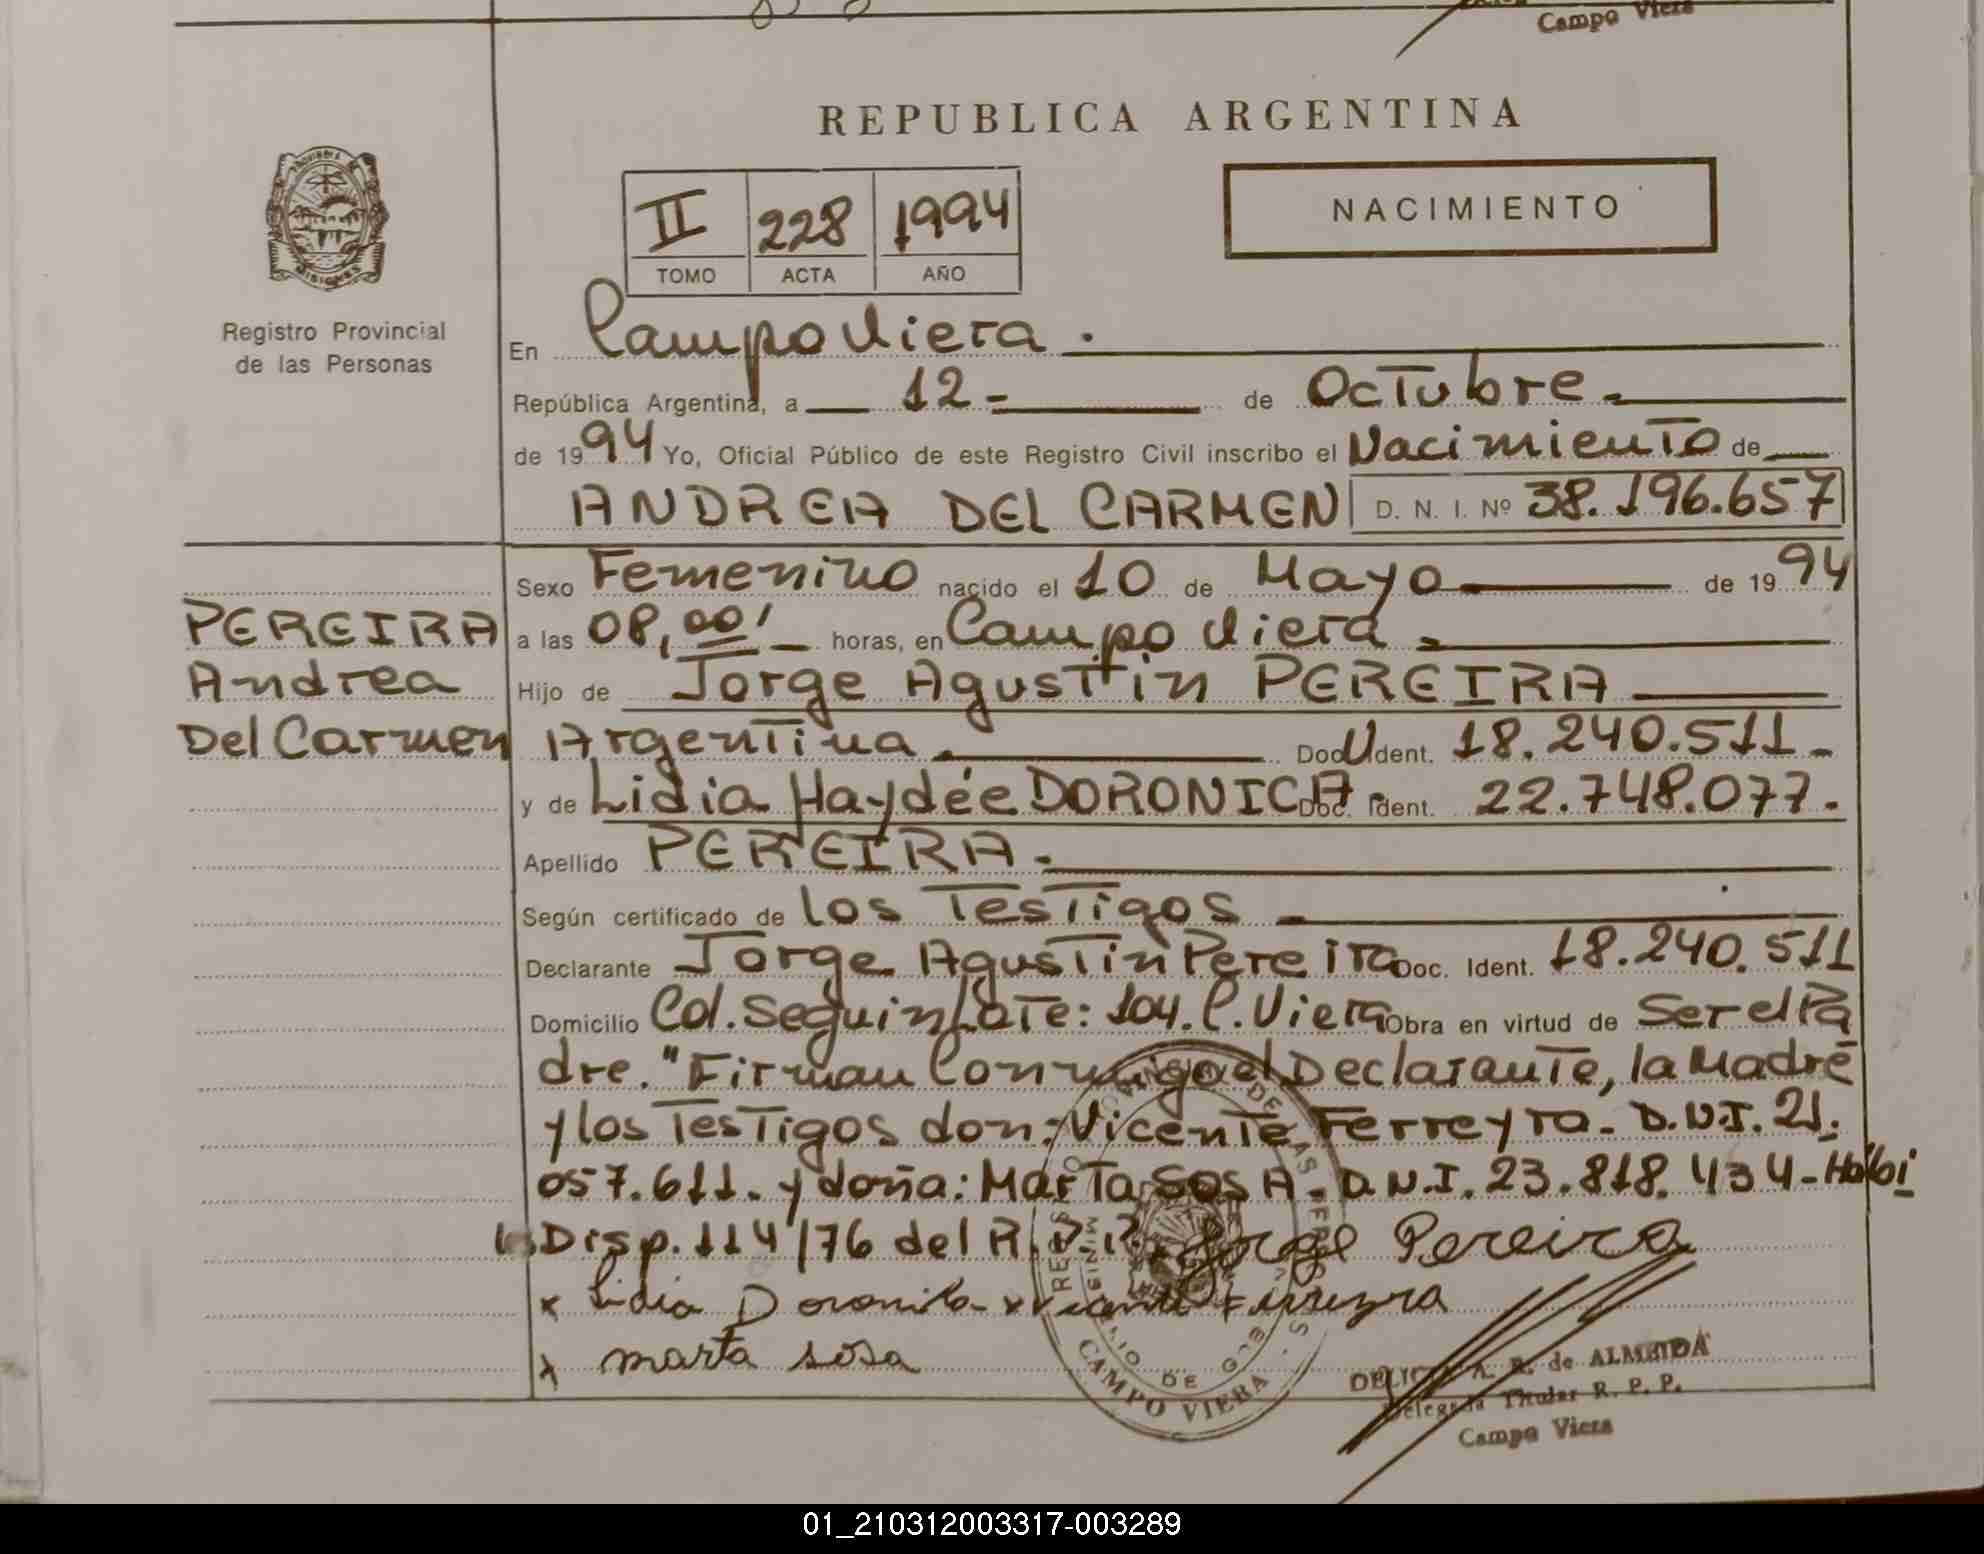 Campo Viera
REPUBLICA ARGENTINA
NACIMIENTO
II 228 1994
TOMO ACTA AÑO
Registro Provincial
de las Personas
En Campo Viera.
República Argentina, a 12- de Octubre.
de 1994 Yo, Oficial Público de este Registro Civil inscribo el Nacimiento de
ANDREA DEL CARMEN D. N. I. Nº 38.196.657
PEREIRA
Andrea
Del Carmen
Sexo Femenino nacido el 10 de Mayo de 1994
a las 08,00' horas, en Campo Viera.
Hijo de Jorge Agustin PEREIRA
Argentina. Doc. Ident. 18.240.511-
y de Lidia Haydée DORONICA Doc. Ident. 22.748.077.
Apellido PEREIRA.
Según certificado de los Testigos
Declarante Jorge Agustin Pereira Doc. Ident. 18.240.511
Domicilio Col. Seguin Lote: 104. C. Viera Obra en virtud de Ser el Pa
dre. "Firman Conmigo el Declarante, la Madre
y los Testigos don: Vicente Ferreyra. D.N.I. 21.
057.611. y doña: Marta SOSA. D.N.I. 23.818.434-
Disp. 114/76 del R.P.P.
Jorge Pereira
x Lidia Doronica x Vicente Ferreyra
x marta sosa
CAMPO VIERA
A. R. de ALMEIDA
Delegada Titular R. P. P.
Campo Viera
01_210312003317-003289